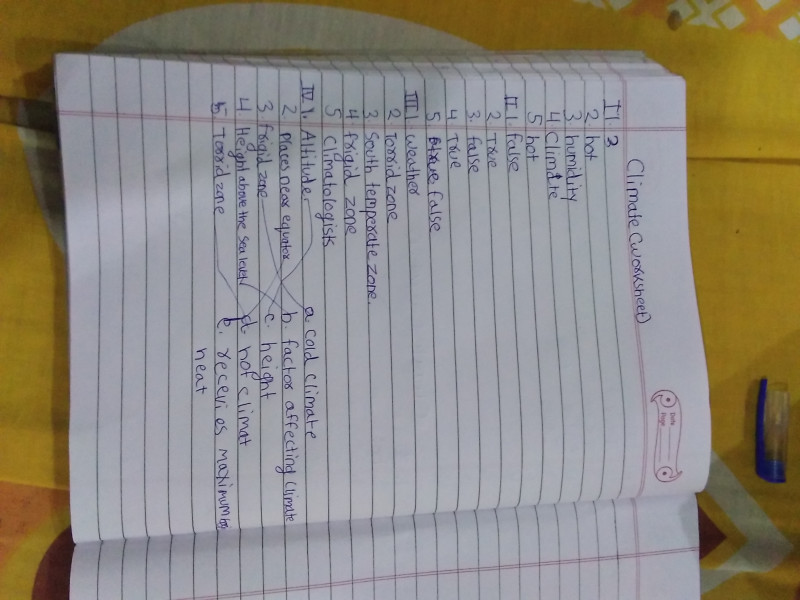 Date
Page
Climate (worksheet)
I 1. 3
2 hot
3 humidity
4 Climate
5 hot
II 1. false
2 True
3. false
4 True
5 false
III 1 weather
2 Torrid zone
3. South temperate zone.
4 frigid zone
5 Climatologists
IV 1. Altitude a. cold climate
2 Places near equator b. factor affecting climate
3. frigid zone c. height
4. Height above the sea level d. hot climat
5. Torrid zone e. recevies maximum
heat